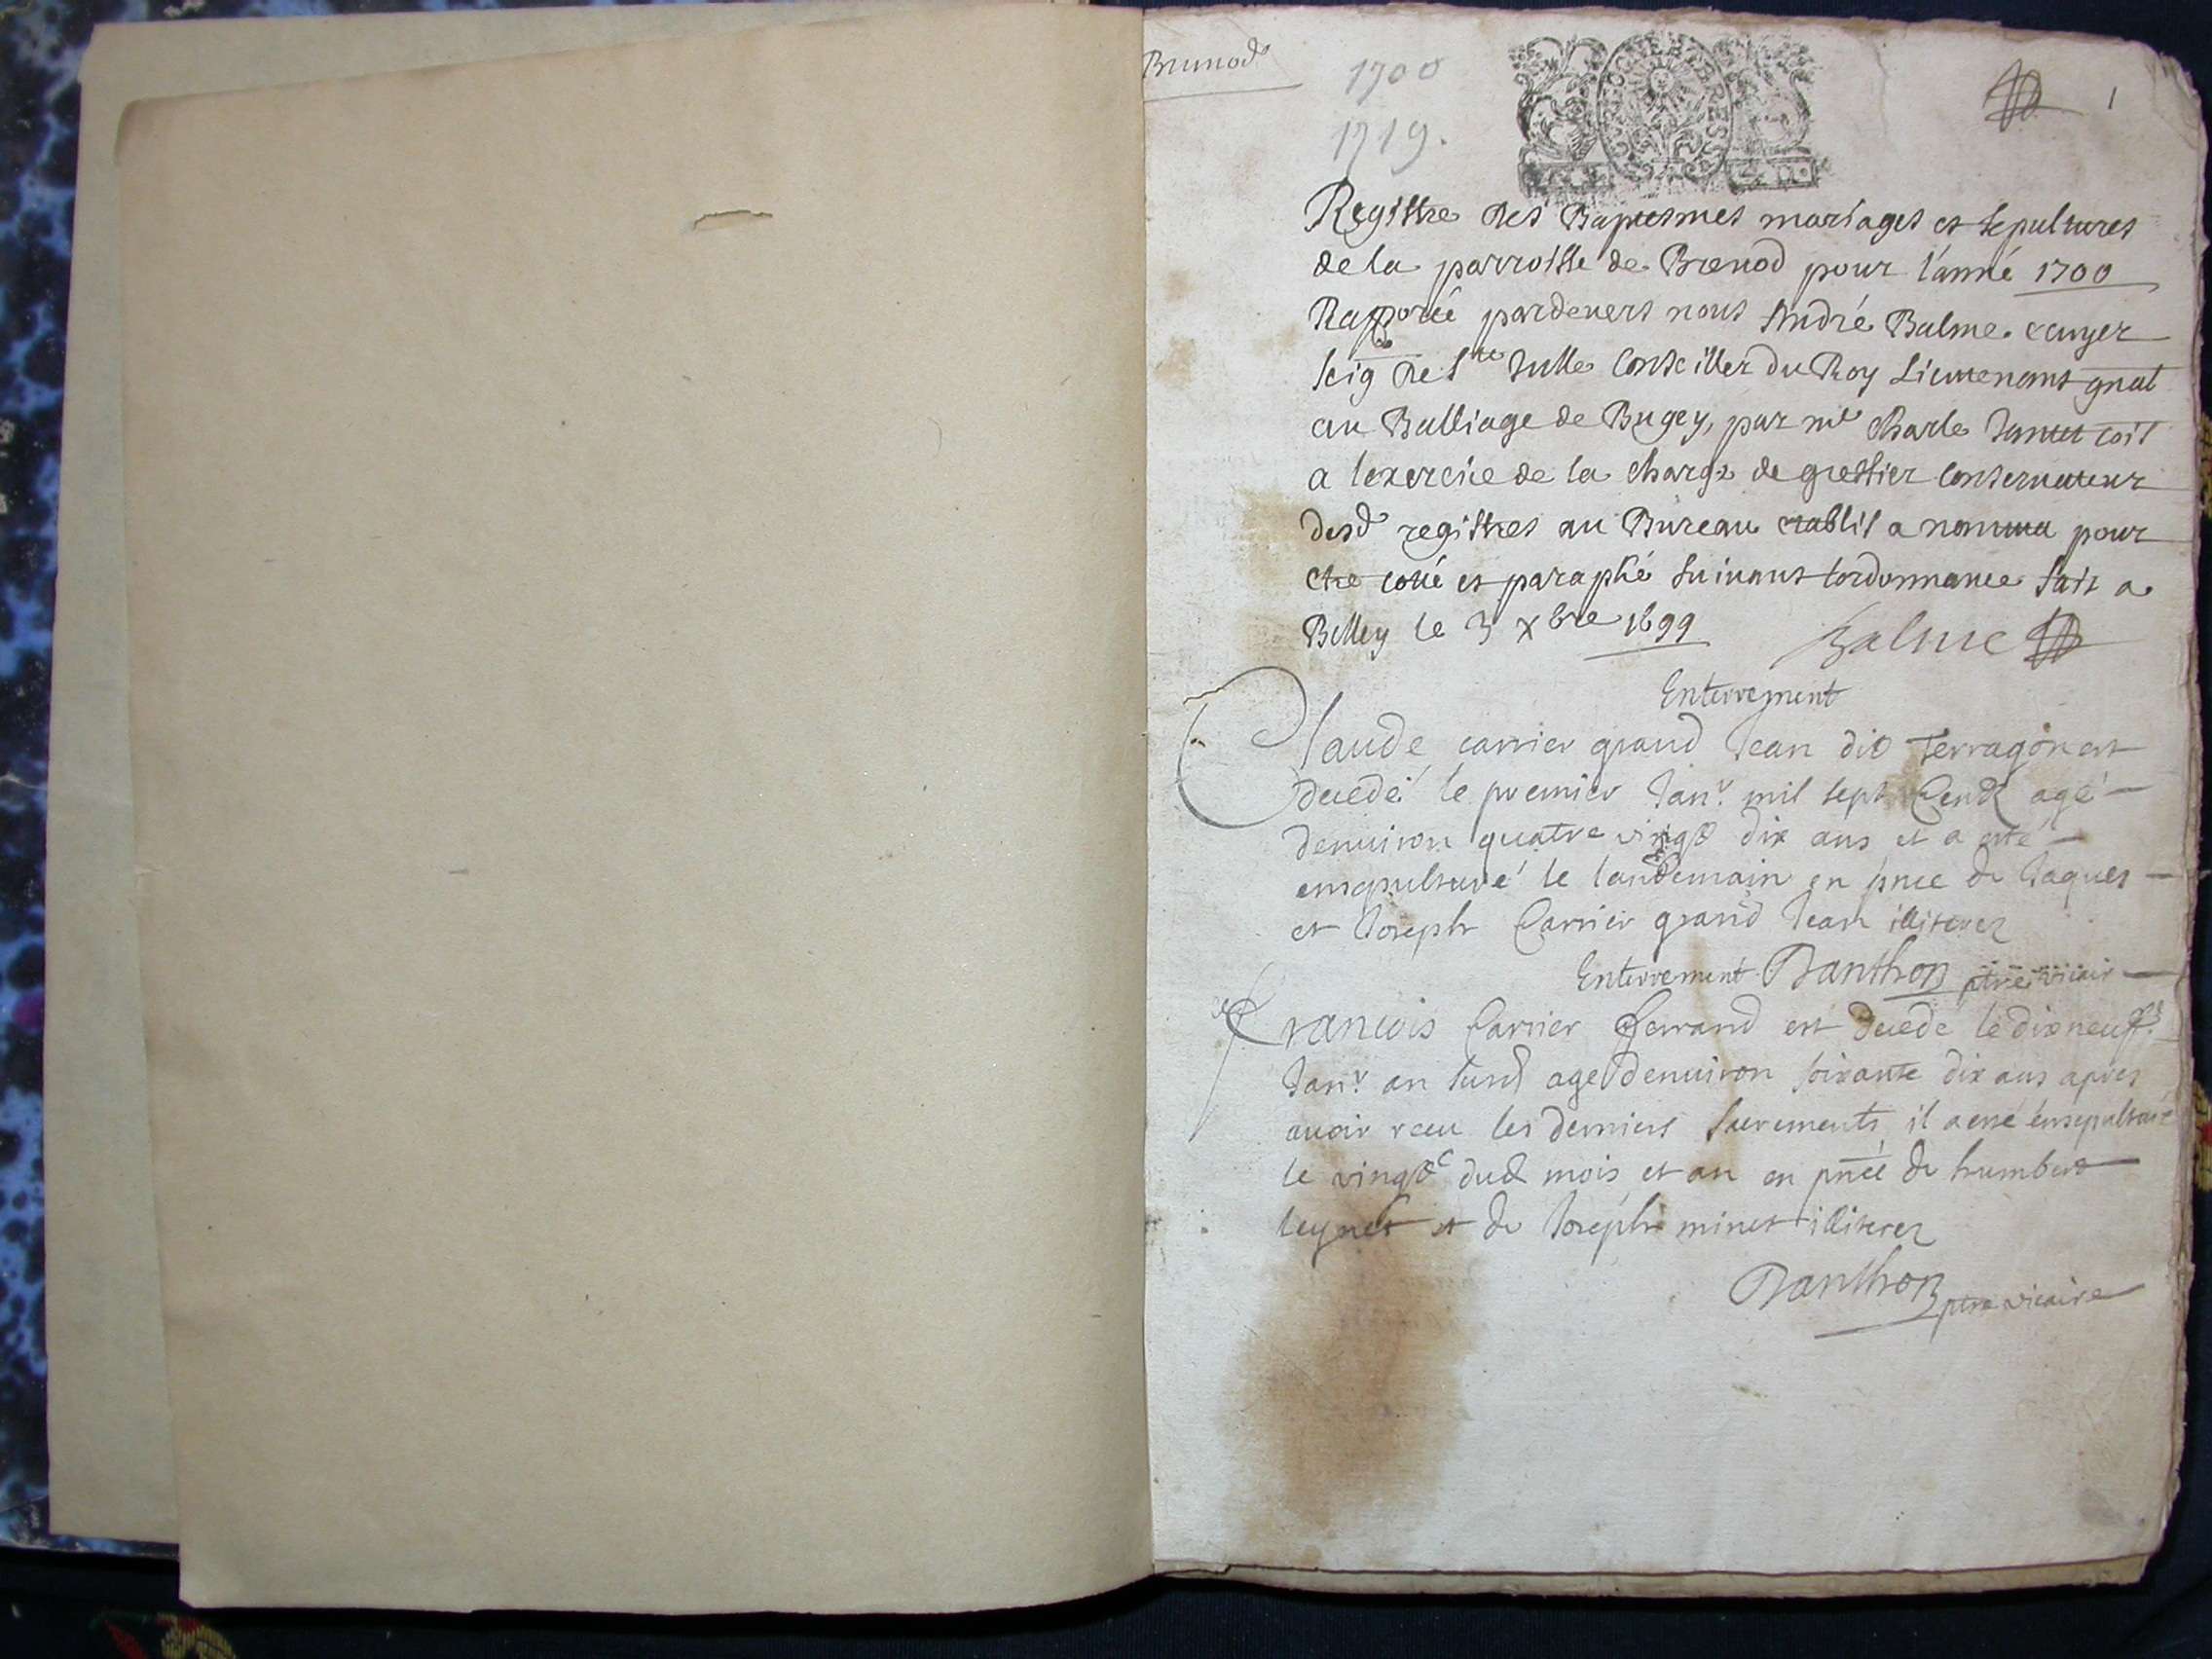 Brenod
1700
1719.
1
Registre des Baptesmes mariages et sepultures
de la parroisse de Brenod pour l'année 1700
Rapporté pardevers nous André Balme ecuyer
seig de Ste Julle Conseiller du Roy Lieutenant gnal
au Balliage de Bugey, par me Charle
a lexercice de la charge de greffier conservateur
desd registres au Bureau etablit a nantua pour
etre coué et paraphé suivant lordonnance fait a
Belley le 3 xbre 1699 Balme
Enterrement
Claude carrier grand Jean dit Terragon est
decedé le premier Janr mil sept Cend agé
denuiron quatre vingt dix ans et a esté
ensepulturé le landemain en pnce de Jaques
et Joseph Carrier grand Jean illiterez
Enterrement Banthon ptre vicair
francois Carrier ferrand est decedé le dixneuf
Janr an susd agé denuiron soixante dix ans apres
auoir receu les derniers sacrements il a esté ensepulturé
le vingte dud mois et an en pncé de humbert
leynet et de Joseph minet illiterez
Banthon ptre vicaire